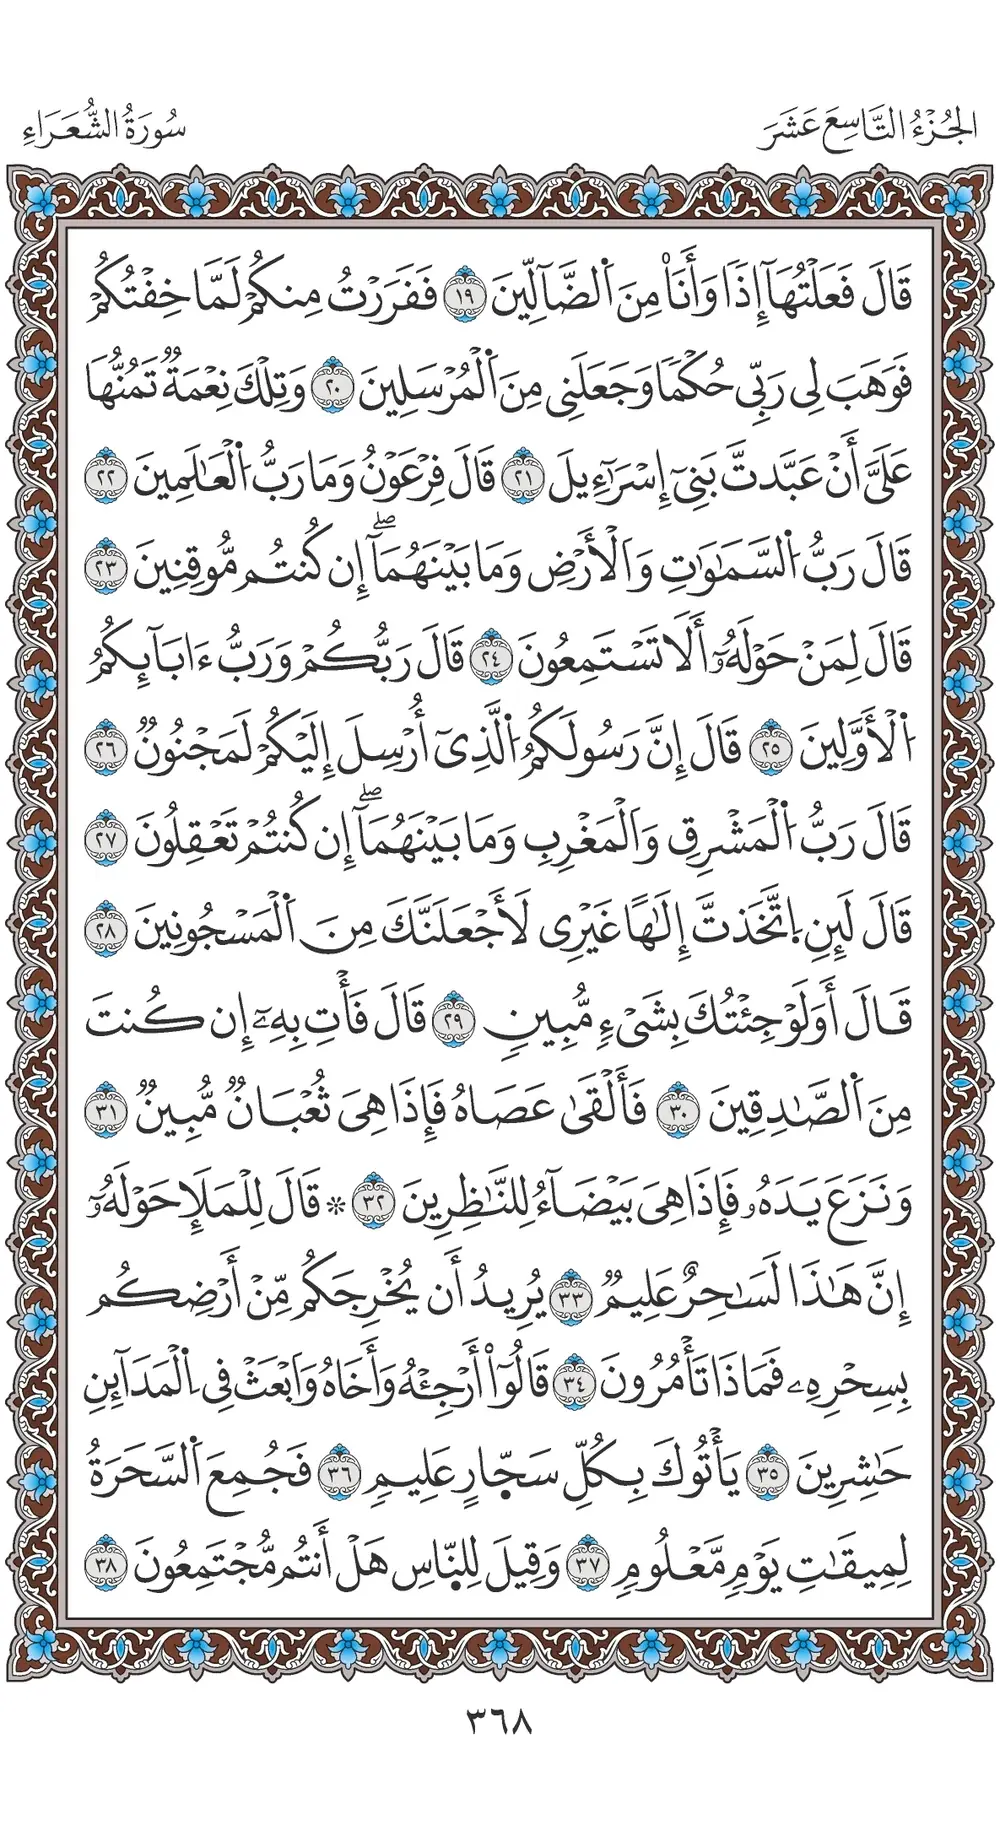 الجُزْءُ التَّاسِعَ عَشَرَ
سُورَةُ الشُّعَرَاءِ
قَالَ فَعَلْتُهَآ إِذٗا وَأَنَا۠ مِنَ اَ۬لضَّآلِّينَ ١٩ فَفَرَرْتُ مِنكُمْ لَمَّا خِفْتُكُمْ
فَوَهَبَ لِے رَبِّے حُكْمٗا وَجَعَلَنِے مِنَ اَ۬لْمُرْسَلِينَ ٢٠ وَتِلْكَ نِعْمَةٞ تَمُنُّهَا
عَلَيَّ أَنْ عَبَّدتَّ بَنِےٓ إِسْرَآءِيلَ ٢١ قَالَ فِرْعَوْنُ وَمَا رَبُّ اُ۬لْعَٰلَمِينَ ٢٢
قَالَ رَبُّ اُ۬لسَّمَٰوَٰتِ وَالْأَرْضِ وَمَا بَيْنَهُمَآۖ إِن كُنتُم مُّوقِنِينَ ٢٣
قَالَ لِمَنْ حَوْلَهُۥٓ أَلَا تَسْتَمِعُونَ ٢٤ قَالَ رَبُّكُمْ وَرَبُّ ءَابَآئِكُمُ
اُ۬لْأَوَّلِينَ ٢٥ قَالَ إِنَّ رَسُولَكُمُ اُ۬لَّذِےٓ أُرْسِلَ إِلَيْكُمْ لَمَجْنُونٞ ٢٦
قَالَ رَبُّ اُ۬لْمَشْرِقِ وَالْمَغْرِبِ وَمَا بَيْنَهُمَآۖ إِن كُنتُمْ تَعْقِلُونَ ٢٧
قَالَ لَئِنِ اِ۪تَّخَذتَّ إِلَٰهًا غَيْرِے لَأَجْعَلَنَّكَ مِنَ اَ۬لْمَسْجُونِينَ ٢٨
قَالَ أَوَلَوْ جِئْتُكَ بِشَےْءٖ مُّبِينٖ ٢٩ قَالَ فَأْتِ بِهِۦٓ إِن كُنتَ
مِنَ اَ۬لصَّٰدِقِينَ ٣٠ فَأَلْقَىٰ عَصَاهُ فَإِذَا هِيَ ثُعْبَانٞ مُّبِينٞ ٣١
وَنَزَعَ يَدَهُۥ فَإِذَا هِيَ بَيْضَآءُ لِلنَّٰظِرِينَ ٣٢ ۞ قَالَ لِلْمَلَإِ حَوْلَهُۥٓ
إِنَّ هَٰذَا لَسَٰحِرٌ عَلِيمٞ ٣٣ يُرِيدُ أَن يُخْرِجَكُم مِّنْ أَرْضِكُم
بِسِحْرِهِۦ فَمَاذَا تَأْمُرُونَ ٣٤ قَالُوٓاْ أَرْجِئْهُ وَأَخَاهُ وَابْعَثْ فِے اِ۬لْمَدَآئِنِ
حَٰشِرِينَ ٣٥ يَأْتُوكَ بِكُلِّ سَحّ۪ارٍ عَلِيمٖ ٣٦ فَجُمِعَ اَ۬لسَّحَرَةُ
لِمِيقَٰتِ يَوْمٖ مَّعْلُومٖ ٣٧ وَقِيلَ لِلنَّاسِ هَلْ أَنتُم مُّجْتَمِعُونَ ٣٨
٣٦٨